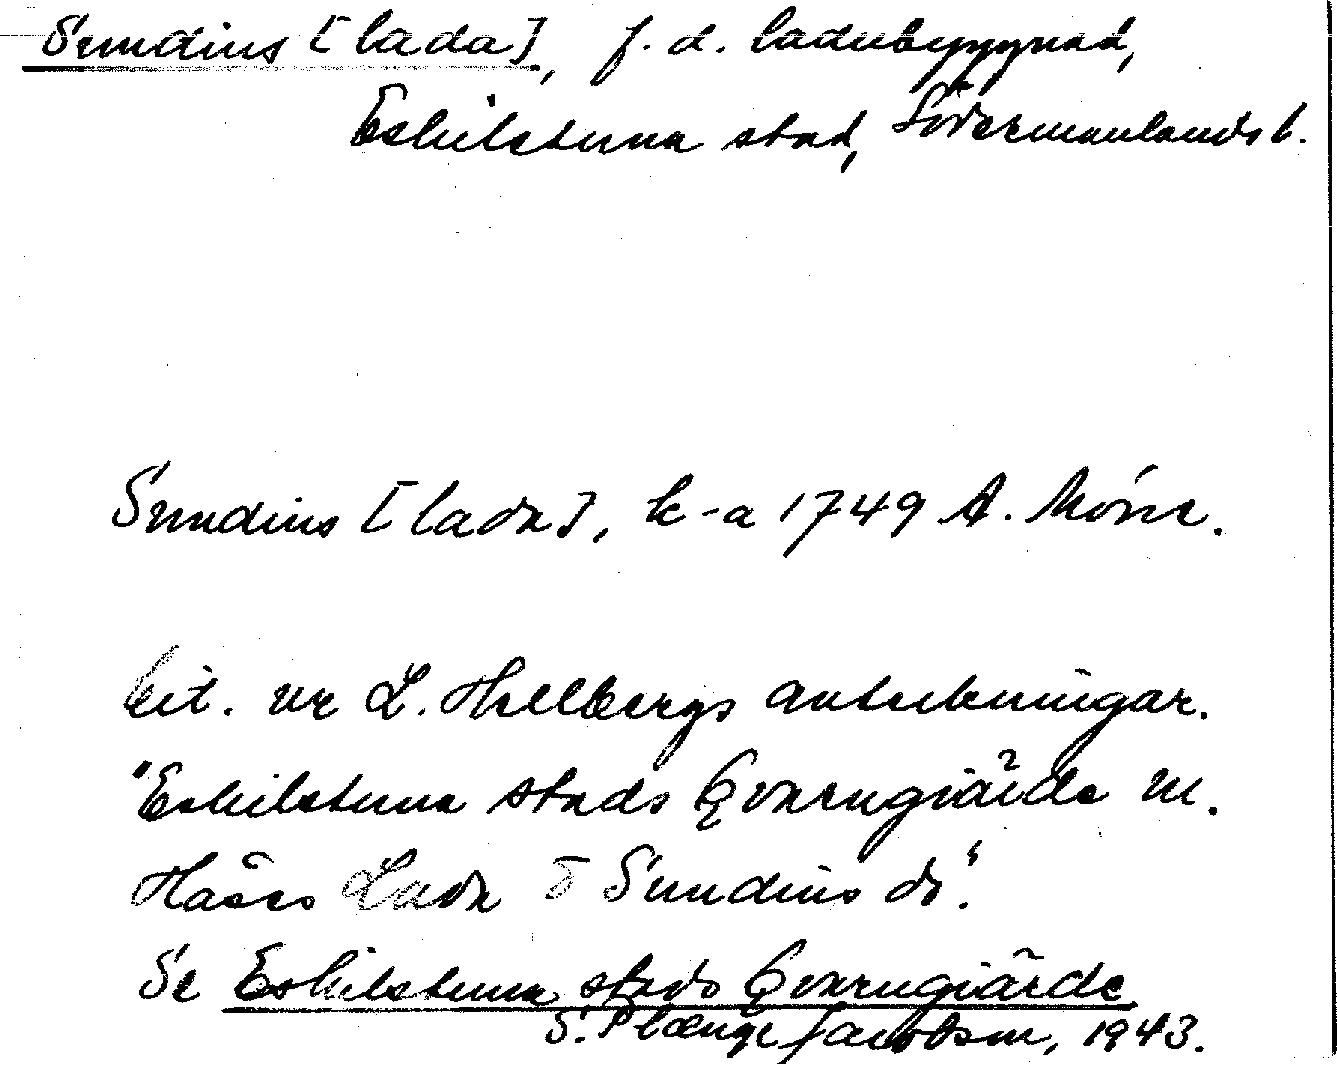 Sundius [lada], f. d. ladubyggnad,
Eskilstuna stad, Södermanlands l.
Sundius [lada], k-a 1749 A. Mörn.
Cit. ur L. Hellbergs anteckningar.
"Eskilstuna stads Qvarngiärde m.
Håårs Lada o Sundius do".
Se Eskilstuna stads Qvarngiärde
S. Plænge Jacobson, 1943.